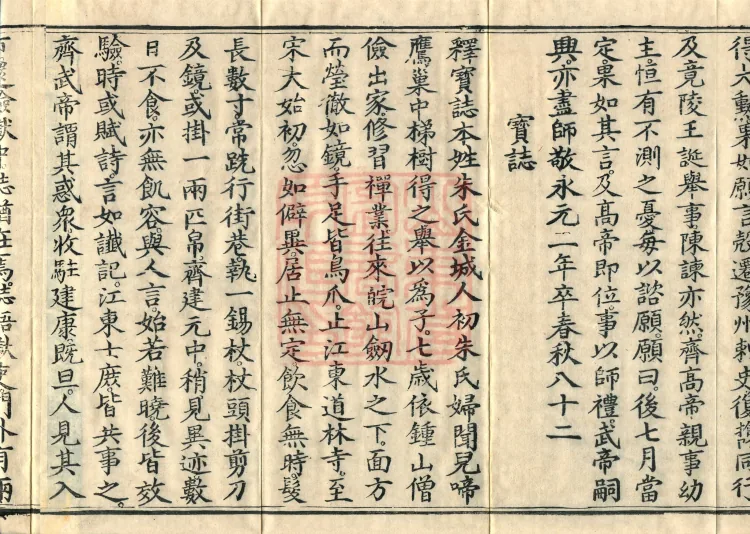 勳果如願言殼遷豫州刺史復同行
及竟陵王誕舉事。陳諫亦然。齊高帝親事幼
主。恒有不測之憂。每以諮願。願曰。後七月當
定。果如其言。及高帝即位。事以師禮。武帝嗣
興。亦盡師敬。永元二年卒。春秋八十二
寶誌
釋寶誌。本姓朱氏。金城人。初朱氏婦聞兒啼
鷹巢中。梯樹得之。舉以為子。七歲依鍾山僧
儉出家。修習禪業。往來皖山劒水之下。面方
而瑩徹如鏡。手足皆鳥爪。止江東道林寺。至
宋大始初。忽如僻異。居止無定。飲食無時。髮
長數寸。常跣行街巷。執一錫杖。杖頭掛剪刀
及鏡。或掛一兩匹帛。齊建元中。稍見異迹。數
日不食。亦無飢容。與人言。始若難曉。後皆效
驗。時或賦詩。言如讖記。江東士庶。皆共事之。
齊武帝謂其惑眾。收駐建康。既旦。人見其入
獄中誌猶在焉誌語獄吏門外有兩